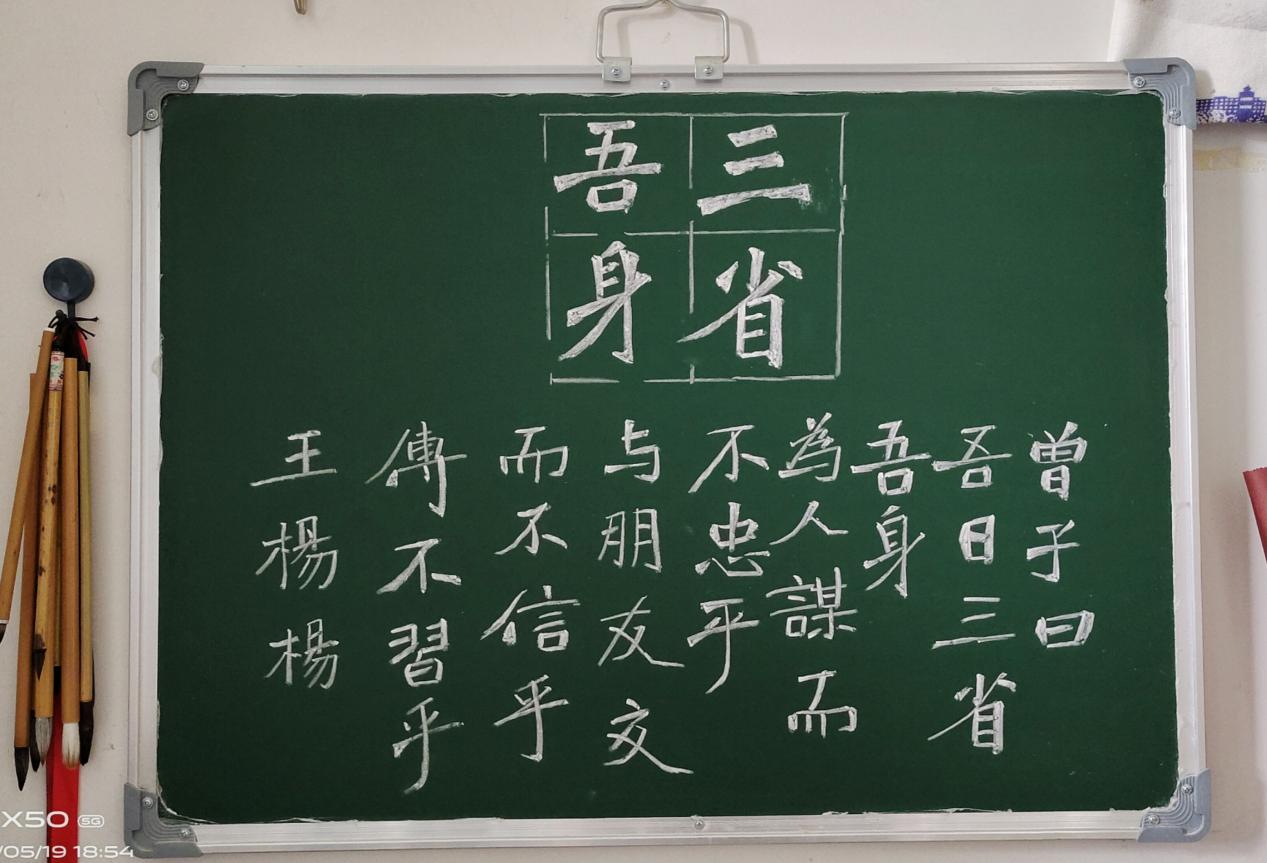 三省
吾身
曾子曰
吾日三省
吾身
為人謀而
不忠乎
与朋友交
而不信乎
傳不習乎
王楊楊
X50 5G
/05/19 18:54